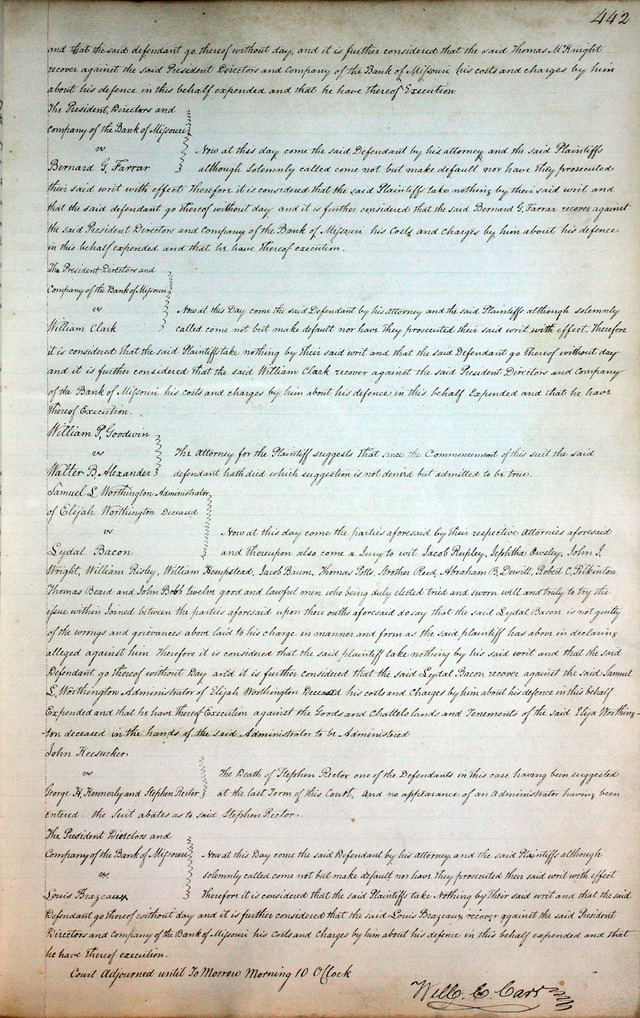 442
and that the said defendant go thereof without day, and it is further considered that the said Thomas McKnight
recover against the said President Directors and Company of the Bank of Missouri his costs and charges by him
about his defence in this behalf expended and that he have thereof Execution
The President, Directors and
Company of the Bank of Missouri
vs Now at this day come the said Defendant by his attorney and the said Plaintiffs
Bernard G. Farrar although solemnly called come not but make default nor have they prosecuted
their said writ with effect Therefore it is considered that the said Plaintiff take nothing by their said writ and
that the said defendant go thereof without day and it is further considered that the said Bernard G. Farrar recover against
the said President Directors and Company of the Bank of Missouri his Costs and charges by him about his defence
in this behalf expended and that he have thereof execution.
The President Directors and
Company of the Bank of Missouri
vs Now at this Day come the said Defendant by his attorney and the said Plaintiff although solemnly
William Clark called come not but make default nor have they prosecuted their said writ with effect. Therefore
it is considered that the said Plaintiffs take nothing by their said writ and that the said Defendant go thereof without day
and it is further considered that the said William Clark recover against the said President Directors and Company
of the Bank of Missouri his costs and charges by him about his defence in this behalf Expended and that he have
thereof Execution.
William P. Goodwin
vs The Attorney for the Plaintiff suggests that since the Commencement of this suit the said
Walter B. Alexander defendant hath died which suggestion is not denied but admitted to be true.
Samuel L Worthington Administrator
of Elijah Worthington Deceased
vs Now at this day come the parties aforesaid by their respective Attornies aforesaid
Lydal Bacon and thereupon also come a Jury to wit Jacob Rupley, Jephtha Owsley, John J.
Wright, William Risley, William Hempstead, Jacob Baum, Thomas Potts, Strother Reed, Abraham B. Dewitt, Robert C. Pilkinton
Thomas Beard and John Bobb twelve good and lawful men who being duly elected tried and sworn well and truly to try the
issue within Joined between the parties aforesaid upon their oaths aforesaid do say that the said Lydal Bacon is not guilty
of the wrongs and grievances above laid to his charge in manner and form as the said plaintiff has above in declaring
alleged against him Therefore it is considered that the said plaintiff take nothing by his said writ and that the said
Defendant go thereof without Day and it is further considered that the said Lydal Bacon recover against the said Samuel
L. Worthington Administrator of Elijah Worthington Deceased his costs and Charges by him about his defence in this behalf
Expended and that he have thereof Execution against the Goods and Chattels lands and Tenements of the said Elija Worthing-
ton deceased in the hands of the said Administrator to be Administered
John Keesucker
vs The Death of Stephen Rector one of the Defendants in this case having been suggested
George H. Kennerly and Stephen Rector at the last Term of this Court, and no appearance of an Administrator having been
entered the Suit abates as to said Stephen Rector.
The President Directors and
Company of the Bank of Missouri Now at this Day come the said Defendant by his attorney and the said Plaintiffs although
vs solemnly called come not but make default nor have they prosecuted their said writ with effect
Louis Brazeaux Therefore it is considered that the said Plaintiffs take Nothing by their said writ and that the said
Defendant go thereof without day and it is further considered that the said Louis Brazeaux recover against the said President
Directors and Company of the Bank of Missouri his Costs and charges by him about his defence in this behalf expended and that
he have thereof execution.
Court Adjourned until To Morrow Morning 10 O'Clock
Will. C. Carr